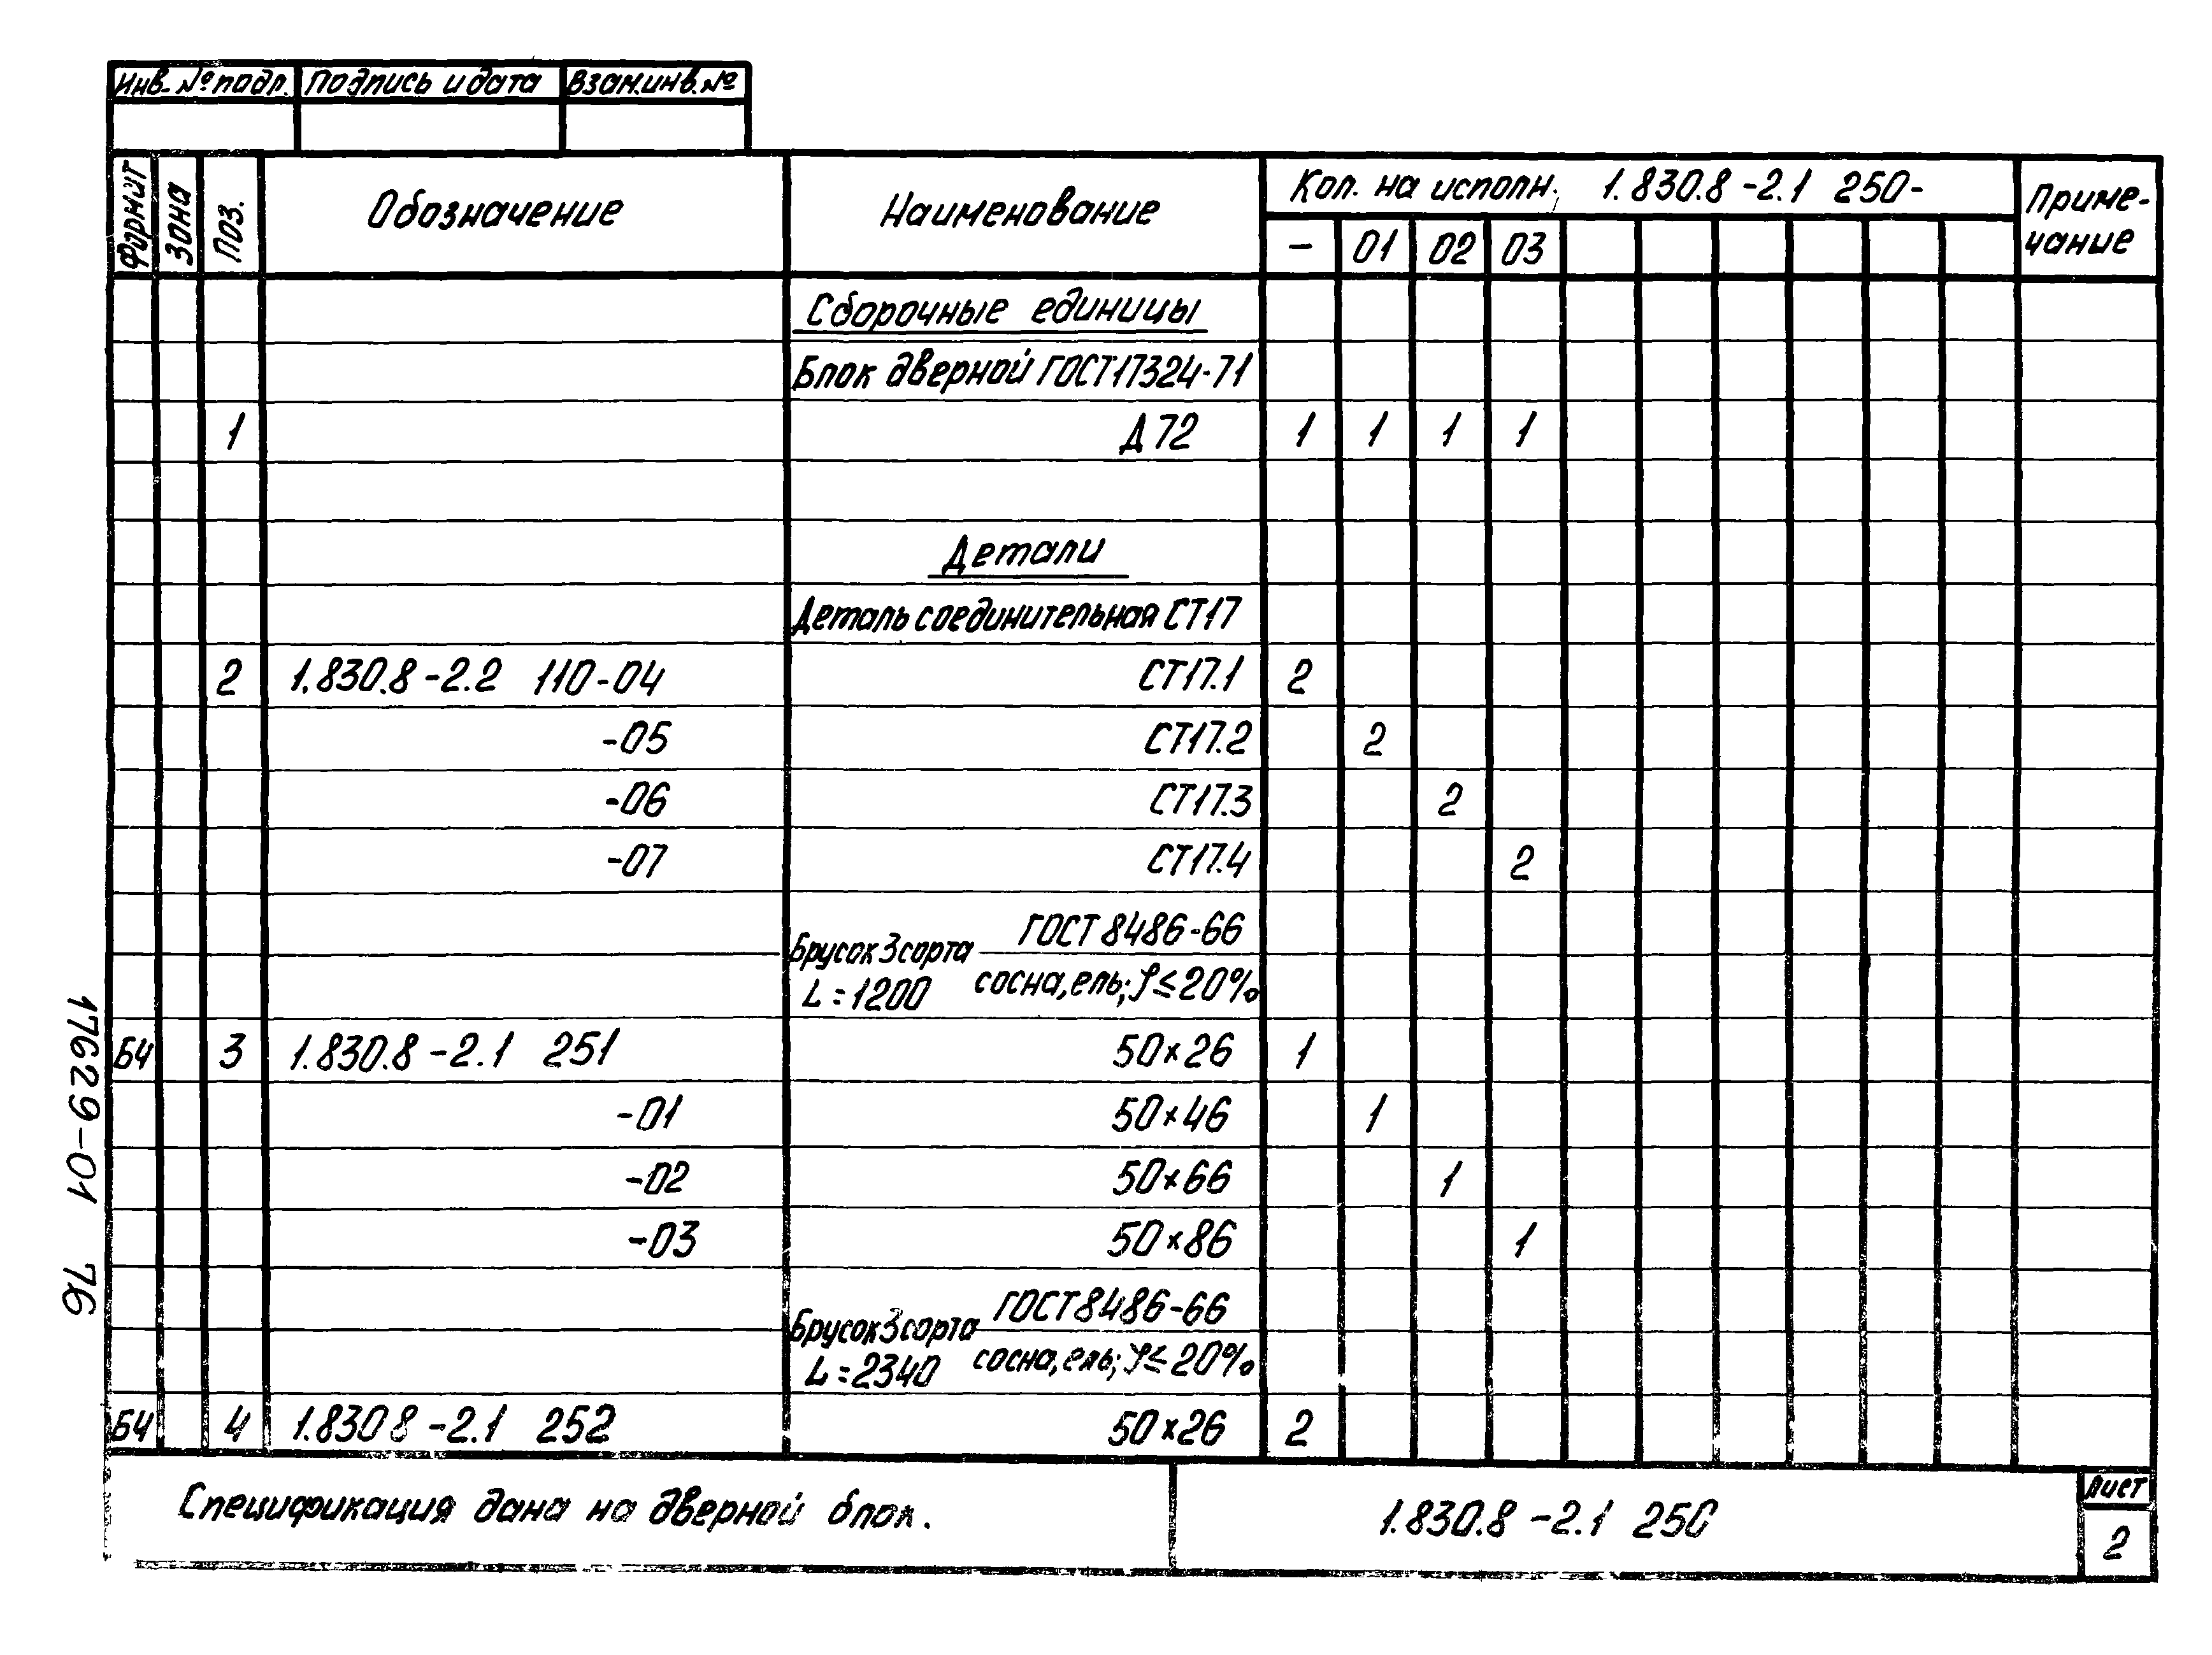 Инв. № подл. Подпись и дата Взам.инв.№
Формат Зона Поз. Обозначение Наименование Кол. на исполн. 1.830.8-2.1 250- Приме-
чание
- 01 02 03
Сборочные единицы
Блок дверной ГОСТ17324-71
1 Д72 1 1 1 1
Детали
Деталь соединительная СТ17
2 1.830.8-2.2 110-04 СТ17.1 2
-05 СТ17.2 2
-06 СТ17.3 2
-07 СТ17.4 2
Брусок 3 сорта ГОСТ 8486-66
L=1200 сосна, ель; φ≤20%
БЧ 3 1.830.8-2.1 251 50×26 1
-01 50×46 1
-02 50×66 1
-03 50×86 1
Брусок 3 сорта ГОСТ 8486-66
L=2340 сосна, ель; φ≤20%
БЧ 4 1.830 8-2.1 252 50×26 2
Спецификация дана на дверной блок.
1.830.8-2.1 250
Лист
2
17629-01 76